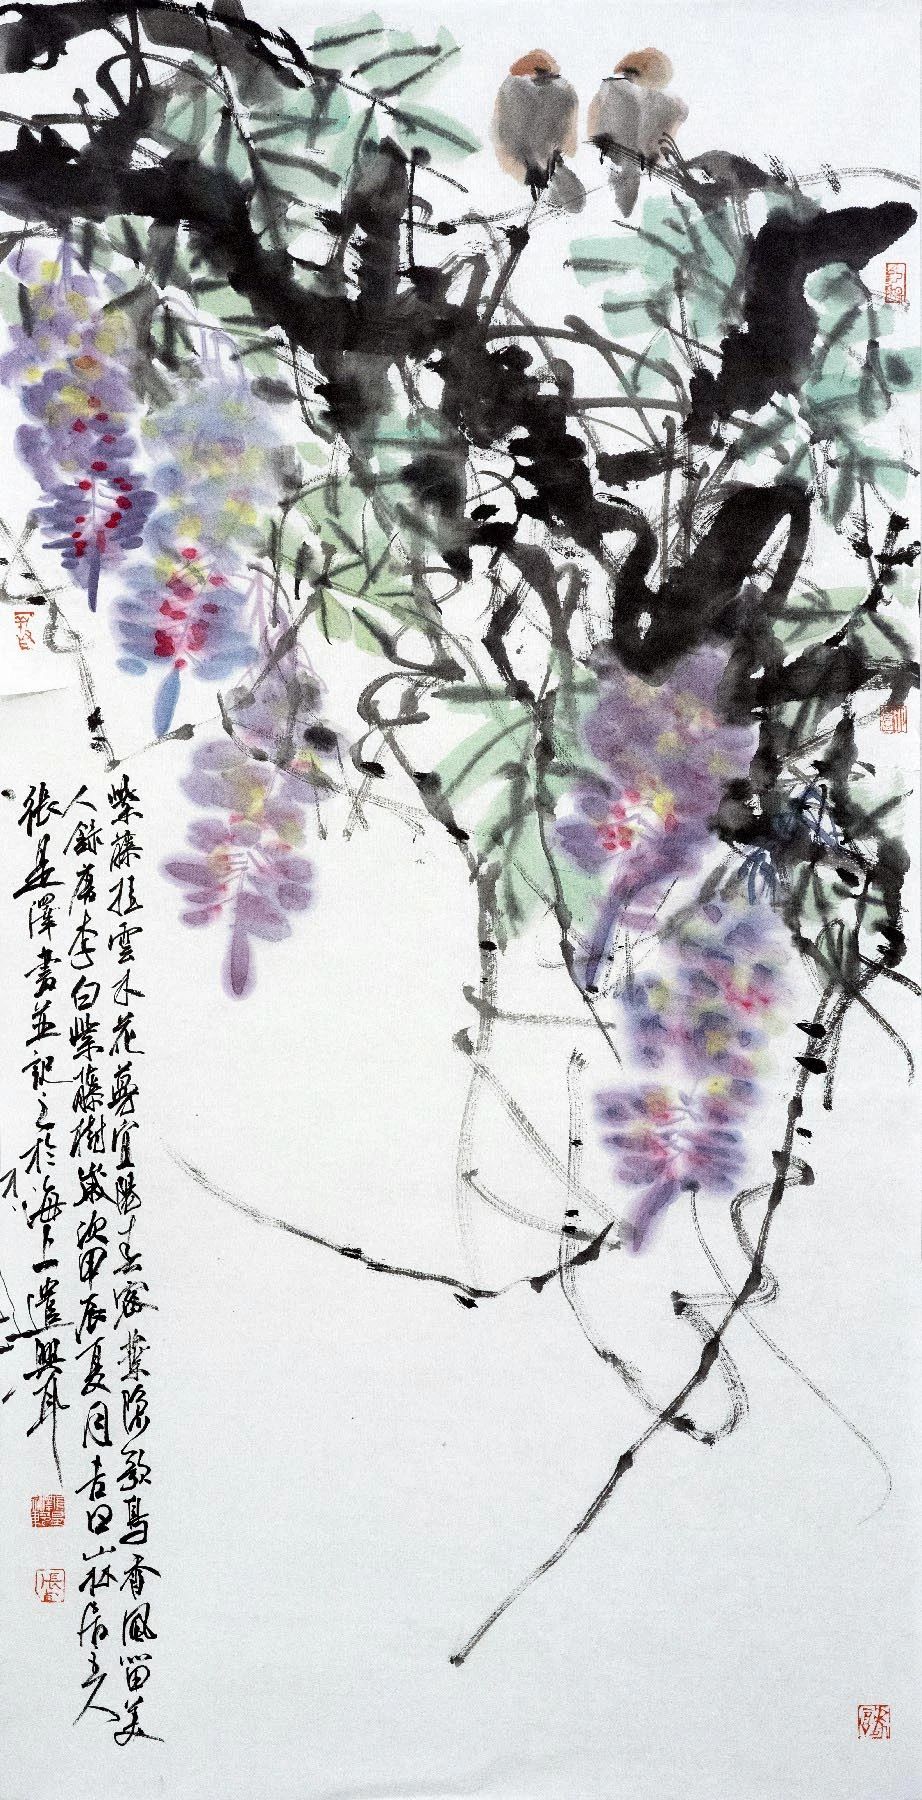 紫藤挂雲木花蔓宜陽春密葉隱歌鳥香風留美
人錄唐李白紫藤樹歲次甲辰夏月吉日山林居主人
張是澤書並記之於海上一遣興耳